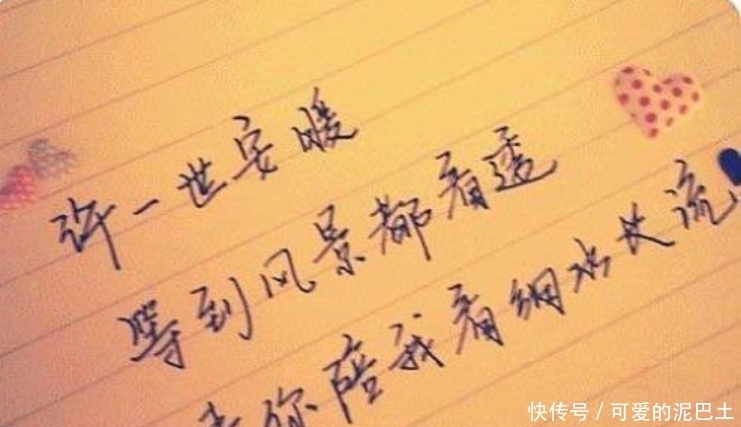 许一世安暖
等到风景都看透
你陪我看细水长流
快传号 / 可爱的泥巴土